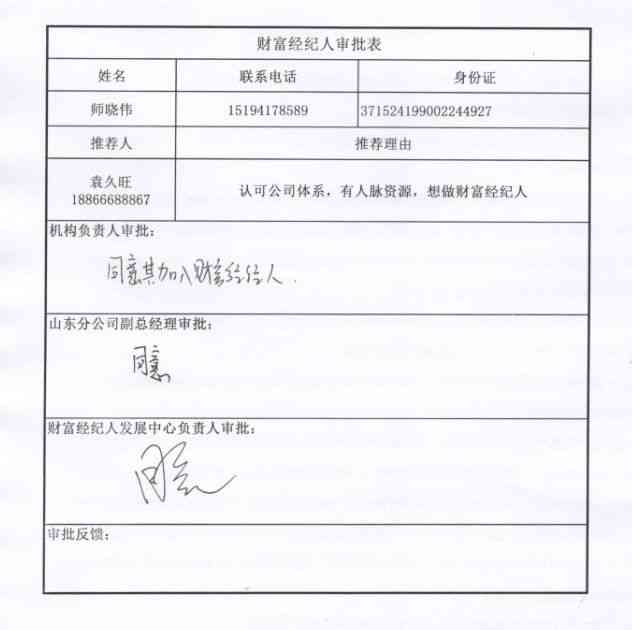 财富经纪人审批表
姓名 联系电话 身份证
师晓伟 15194178589 371524199002244927
推荐人 推荐理由
袁久旺
18866688867
认可公司体系，有人脉资源，想做财富经纪人
机构负责人审批：
同意其加入财富经纪人.
山东分公司副总经理审批：
同意
财富经纪人发展中心负责人审批：
同意
审批反馈：